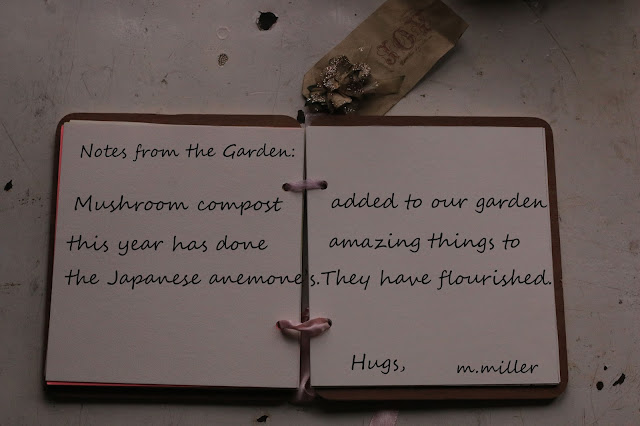 Notes from the Garden:
Mushroom compost added to our garden
this year has done amazing things to
the Japanese anemones.They have flourished.
Hugs, m.miller